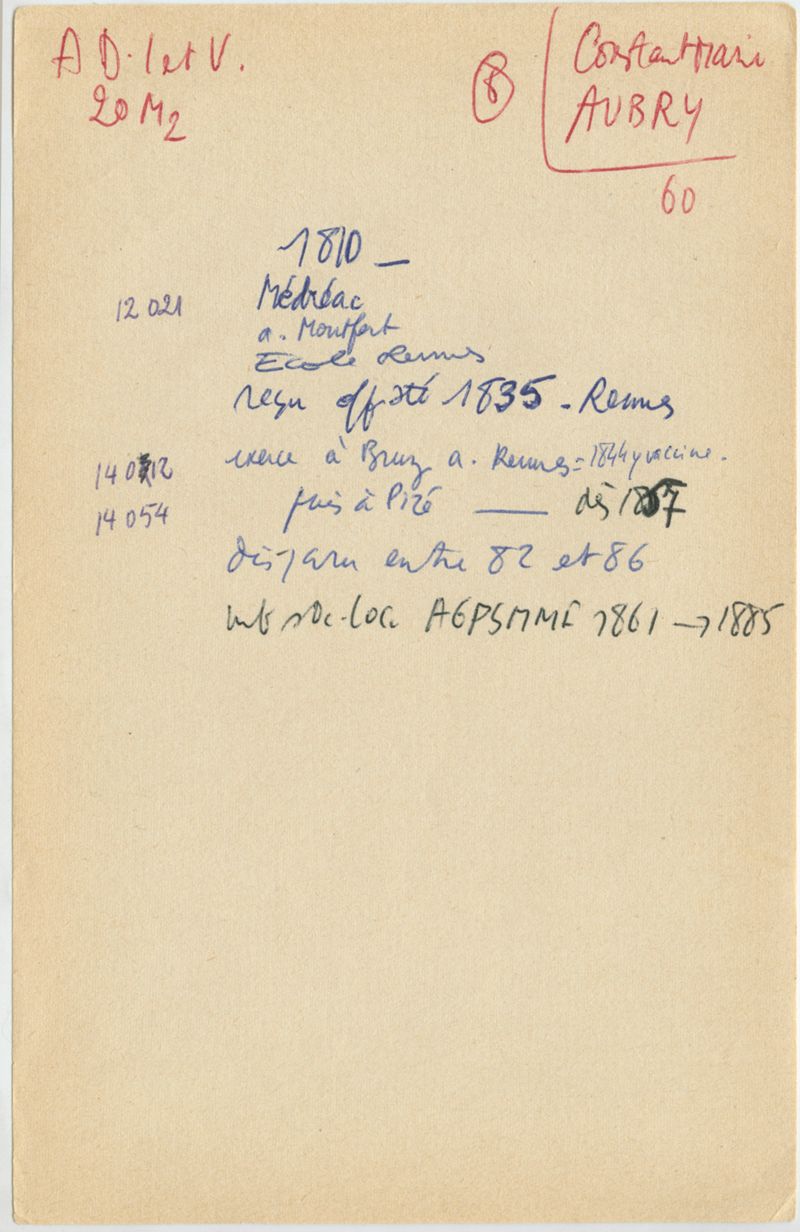 A D. I et V.
20 M2
8
Constant Marie
AUBRY
60
1810 —
12 021 Médréac
a. Montfort
Ecole Rennes
reçu off santé 1835 - Rennes
14 012 exerce à Bruz a. Rennes = 1844 y vaccine.
14 054 puis à Piré —— dès 1857
disparu entre 82 et 86
mb soc. loc. AGPSMMF 1861 → 1885